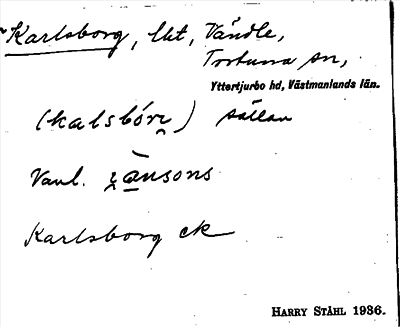 Karlsborg, lht, Vändle,
Tortuna sn,
Yttertjurbo hd, Västmanlands län.
(kalsbórɣ) sällan
Vanl. jànsons
Karlsborg ek
HARRY STÅHL 1936.